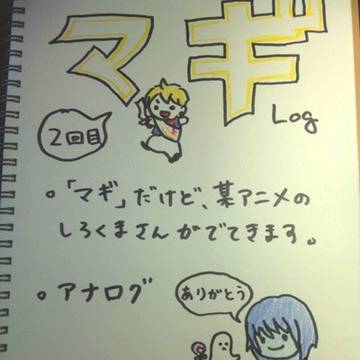 マギ
Log
2回目
。「マギ」だけど、某アニメの
しろくまさんがでてきます。
。アナログ
ありがとう